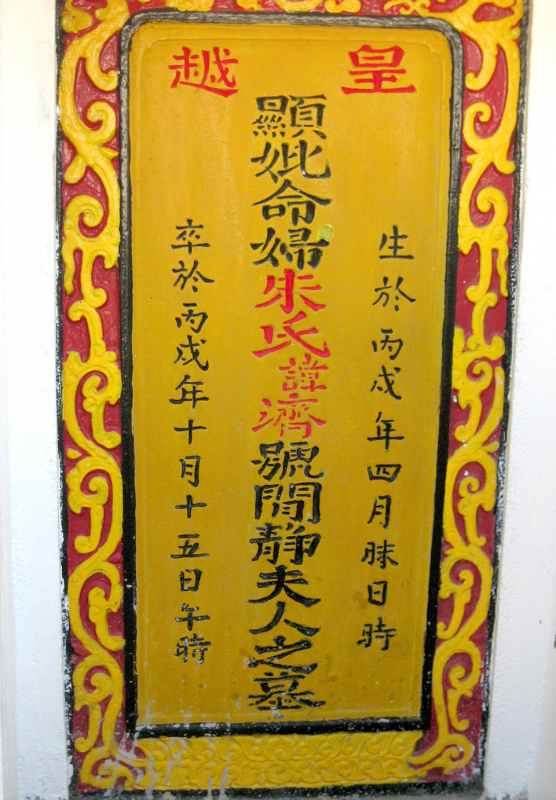 皇越
生於丙戌年四月眜日時
顯妣命婦朱氏諱濟號閒靜夫人之墓
卒於丙戌年十月十五日午時